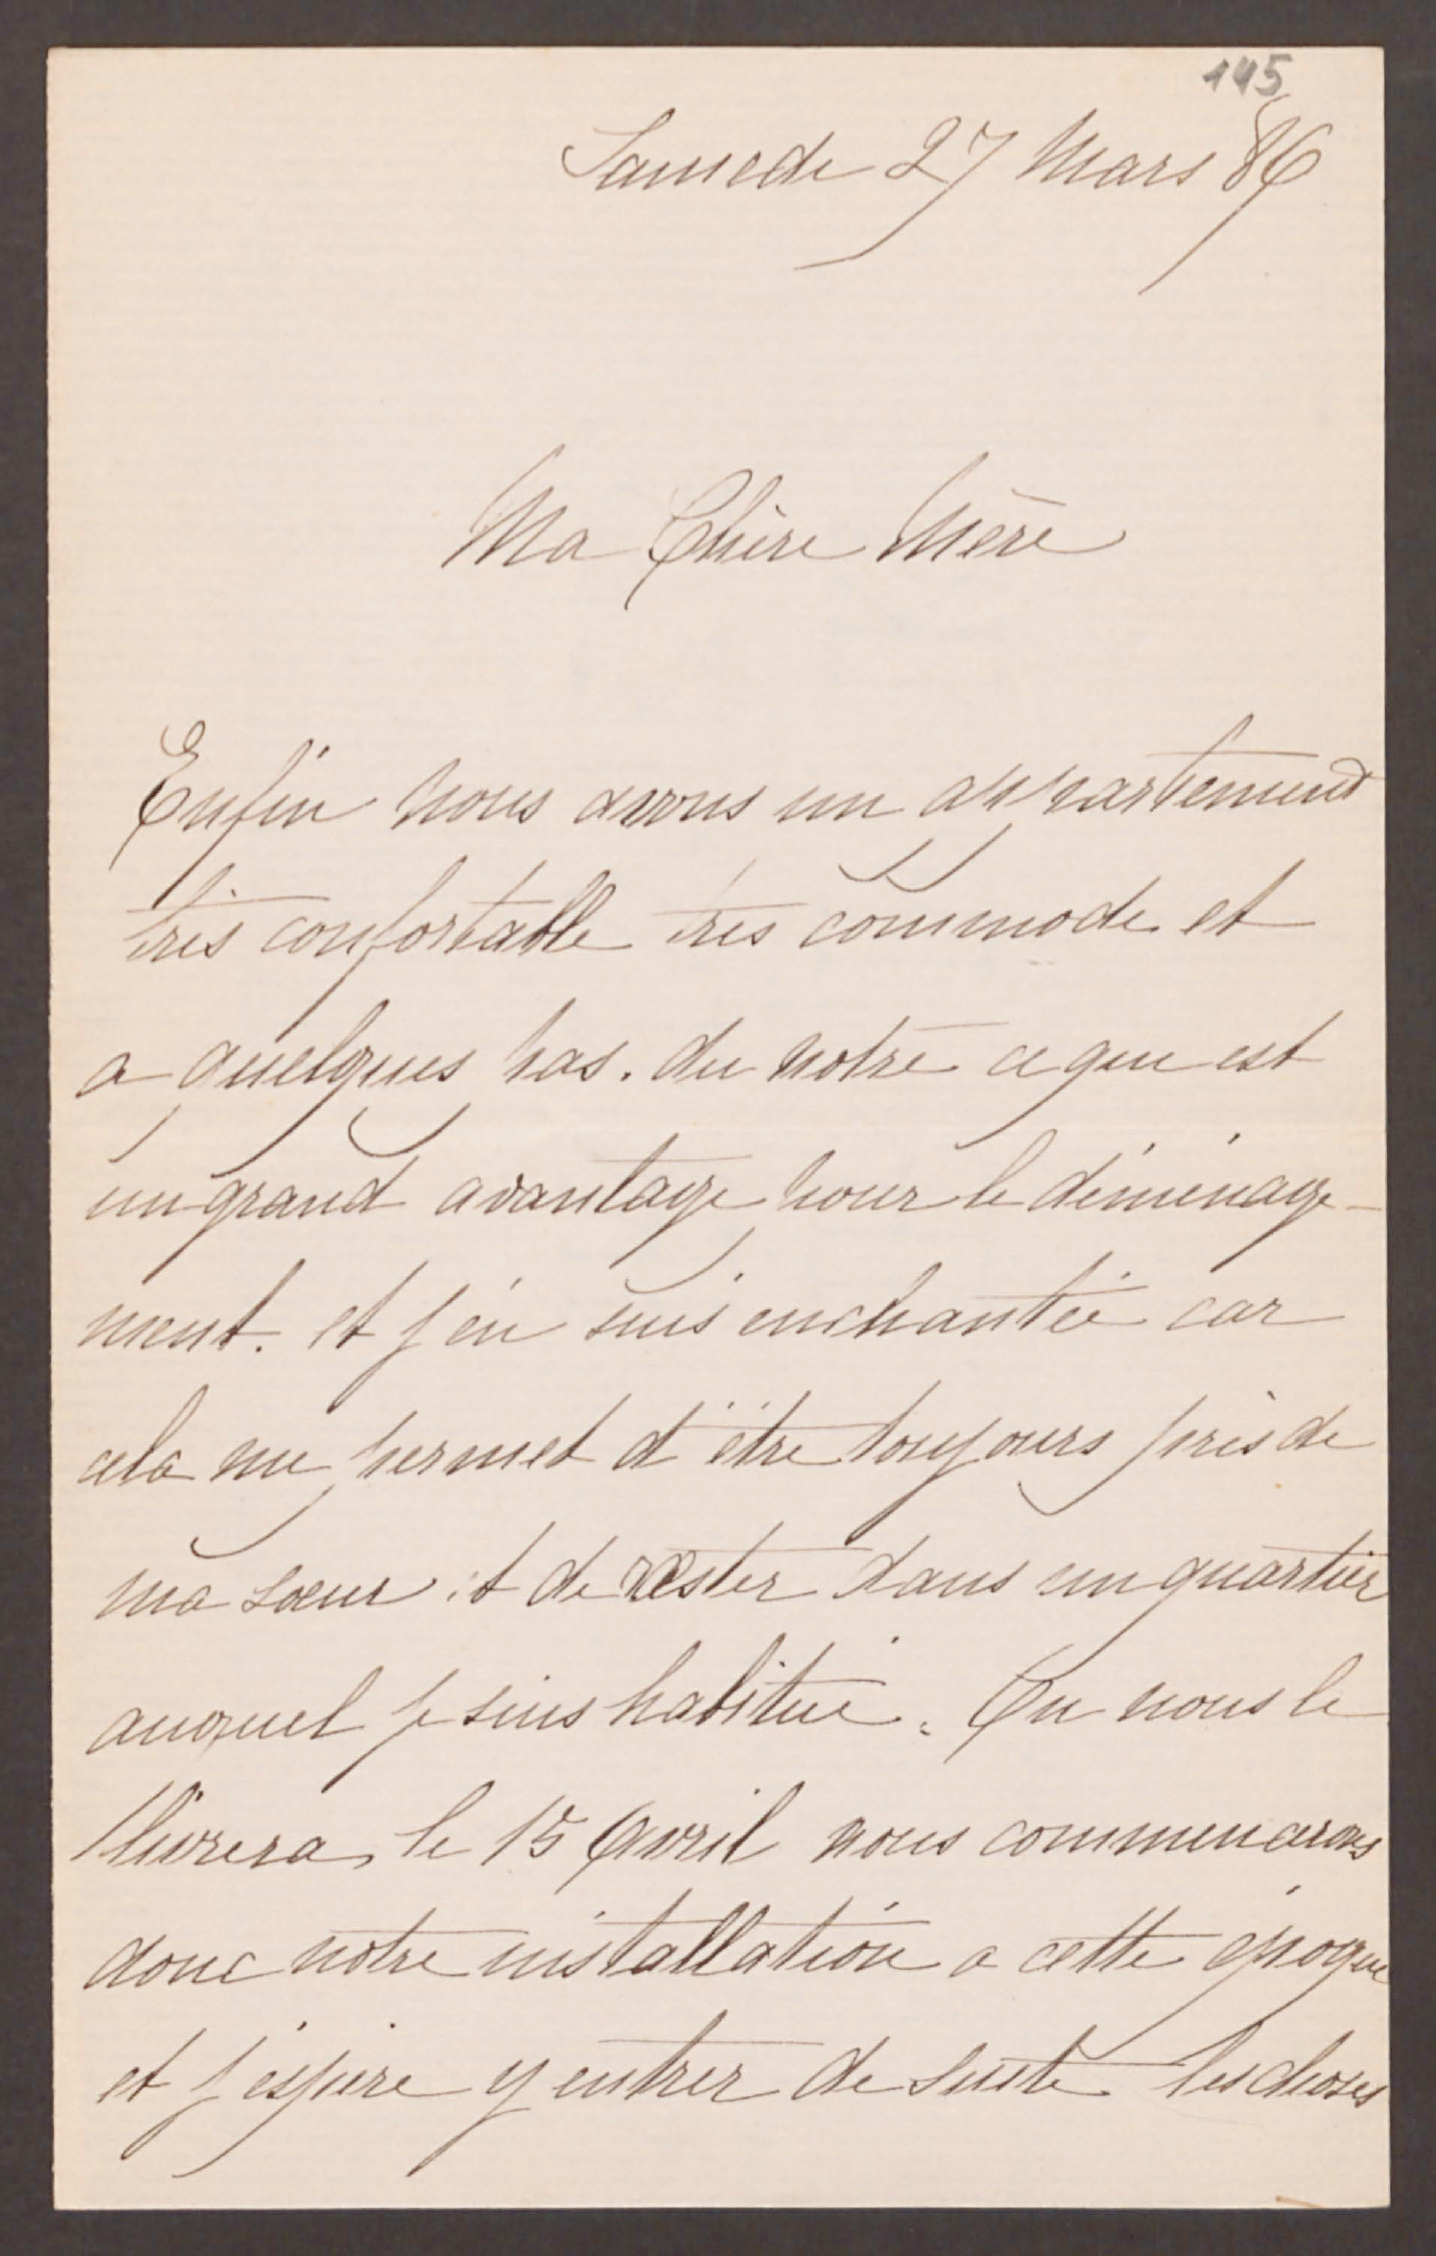 145
Samedi 27 Mars 86
Ma Chère Mère
Enfin nous avons un appartement
très confortable très commode et
a quelques pas. du notre ce qui est
un grand avantage pour le déménage-
ment. et j'en suis enchantée car
cela me permet d'être toujours près de
ma sœur et de rester dans un quartier
auquel je suis habituée. On nous le
livrera le 15 Avril nous commencerons
donc notre installation a cette époque
et j'espère y entrer de suite les choses